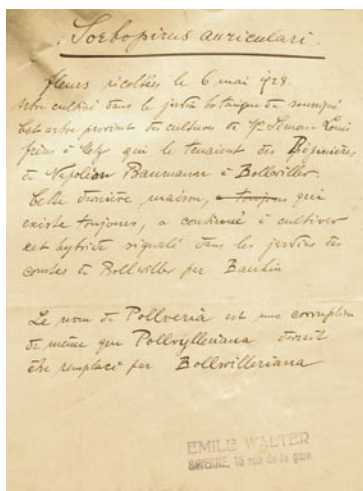 Sorbopirus auriculari.
fleurs récoltées le 6 mai 1928.
Arbre cultivé dans le jardin botanique de
Cet arbre provient des cultures de Mr Simon-Louis
frères à Metz qui le tenaient des Pépinières
de Napoléon Baumann à Bollwiller.
Cette dernière maison, a toujours qui
existe toujours, a continué à cultiver
cet hybride signalé dans les jardins des
comtes de Bollwiller par Bauhin
Le nom de Pollveria est une corruption
de même que Pollvylleriana devrait
être remplacé par Bollwilleriana
EMILE WALTER
SAVERNE, 16 rue de la gare